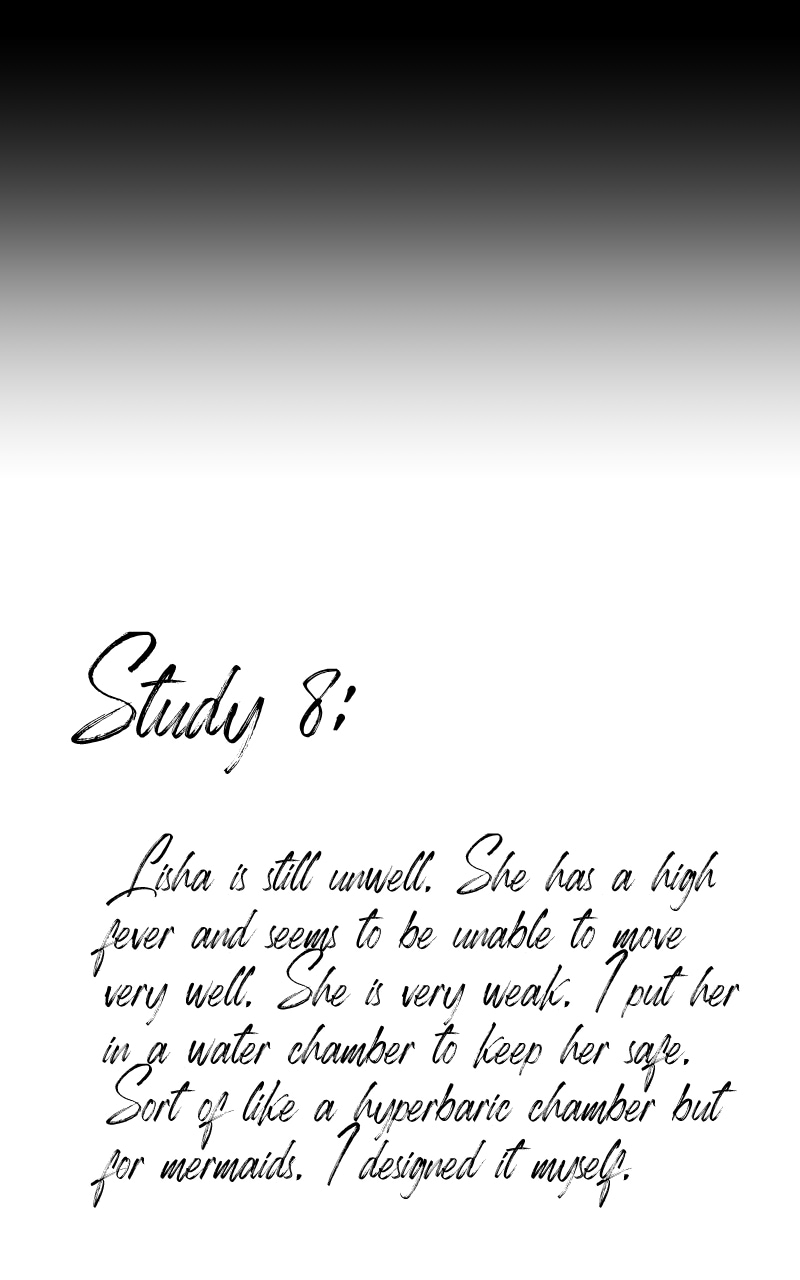 Study 8:
Lisha is still unwell. She has a high
fever and seems to be unable to move
very well. She is very weak. I put her
in a water chamber to keep her safe.
Sort of like a hyperbaric chamber but
for mermaids. I designed it myself.